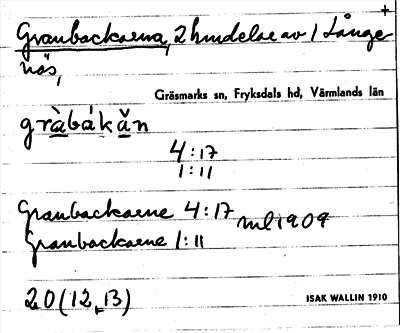 Granbackarna, 2 hmdelar av 1 Långe
näs,
Gräsmarks sn, Fryksdals hd, Värmlands län
gràbákăn
4:17
1:11
Granbackarne 4:17 ml 1909
Granbackarne 1:11
20 (12, 13)
ISAK WALLIN 1910